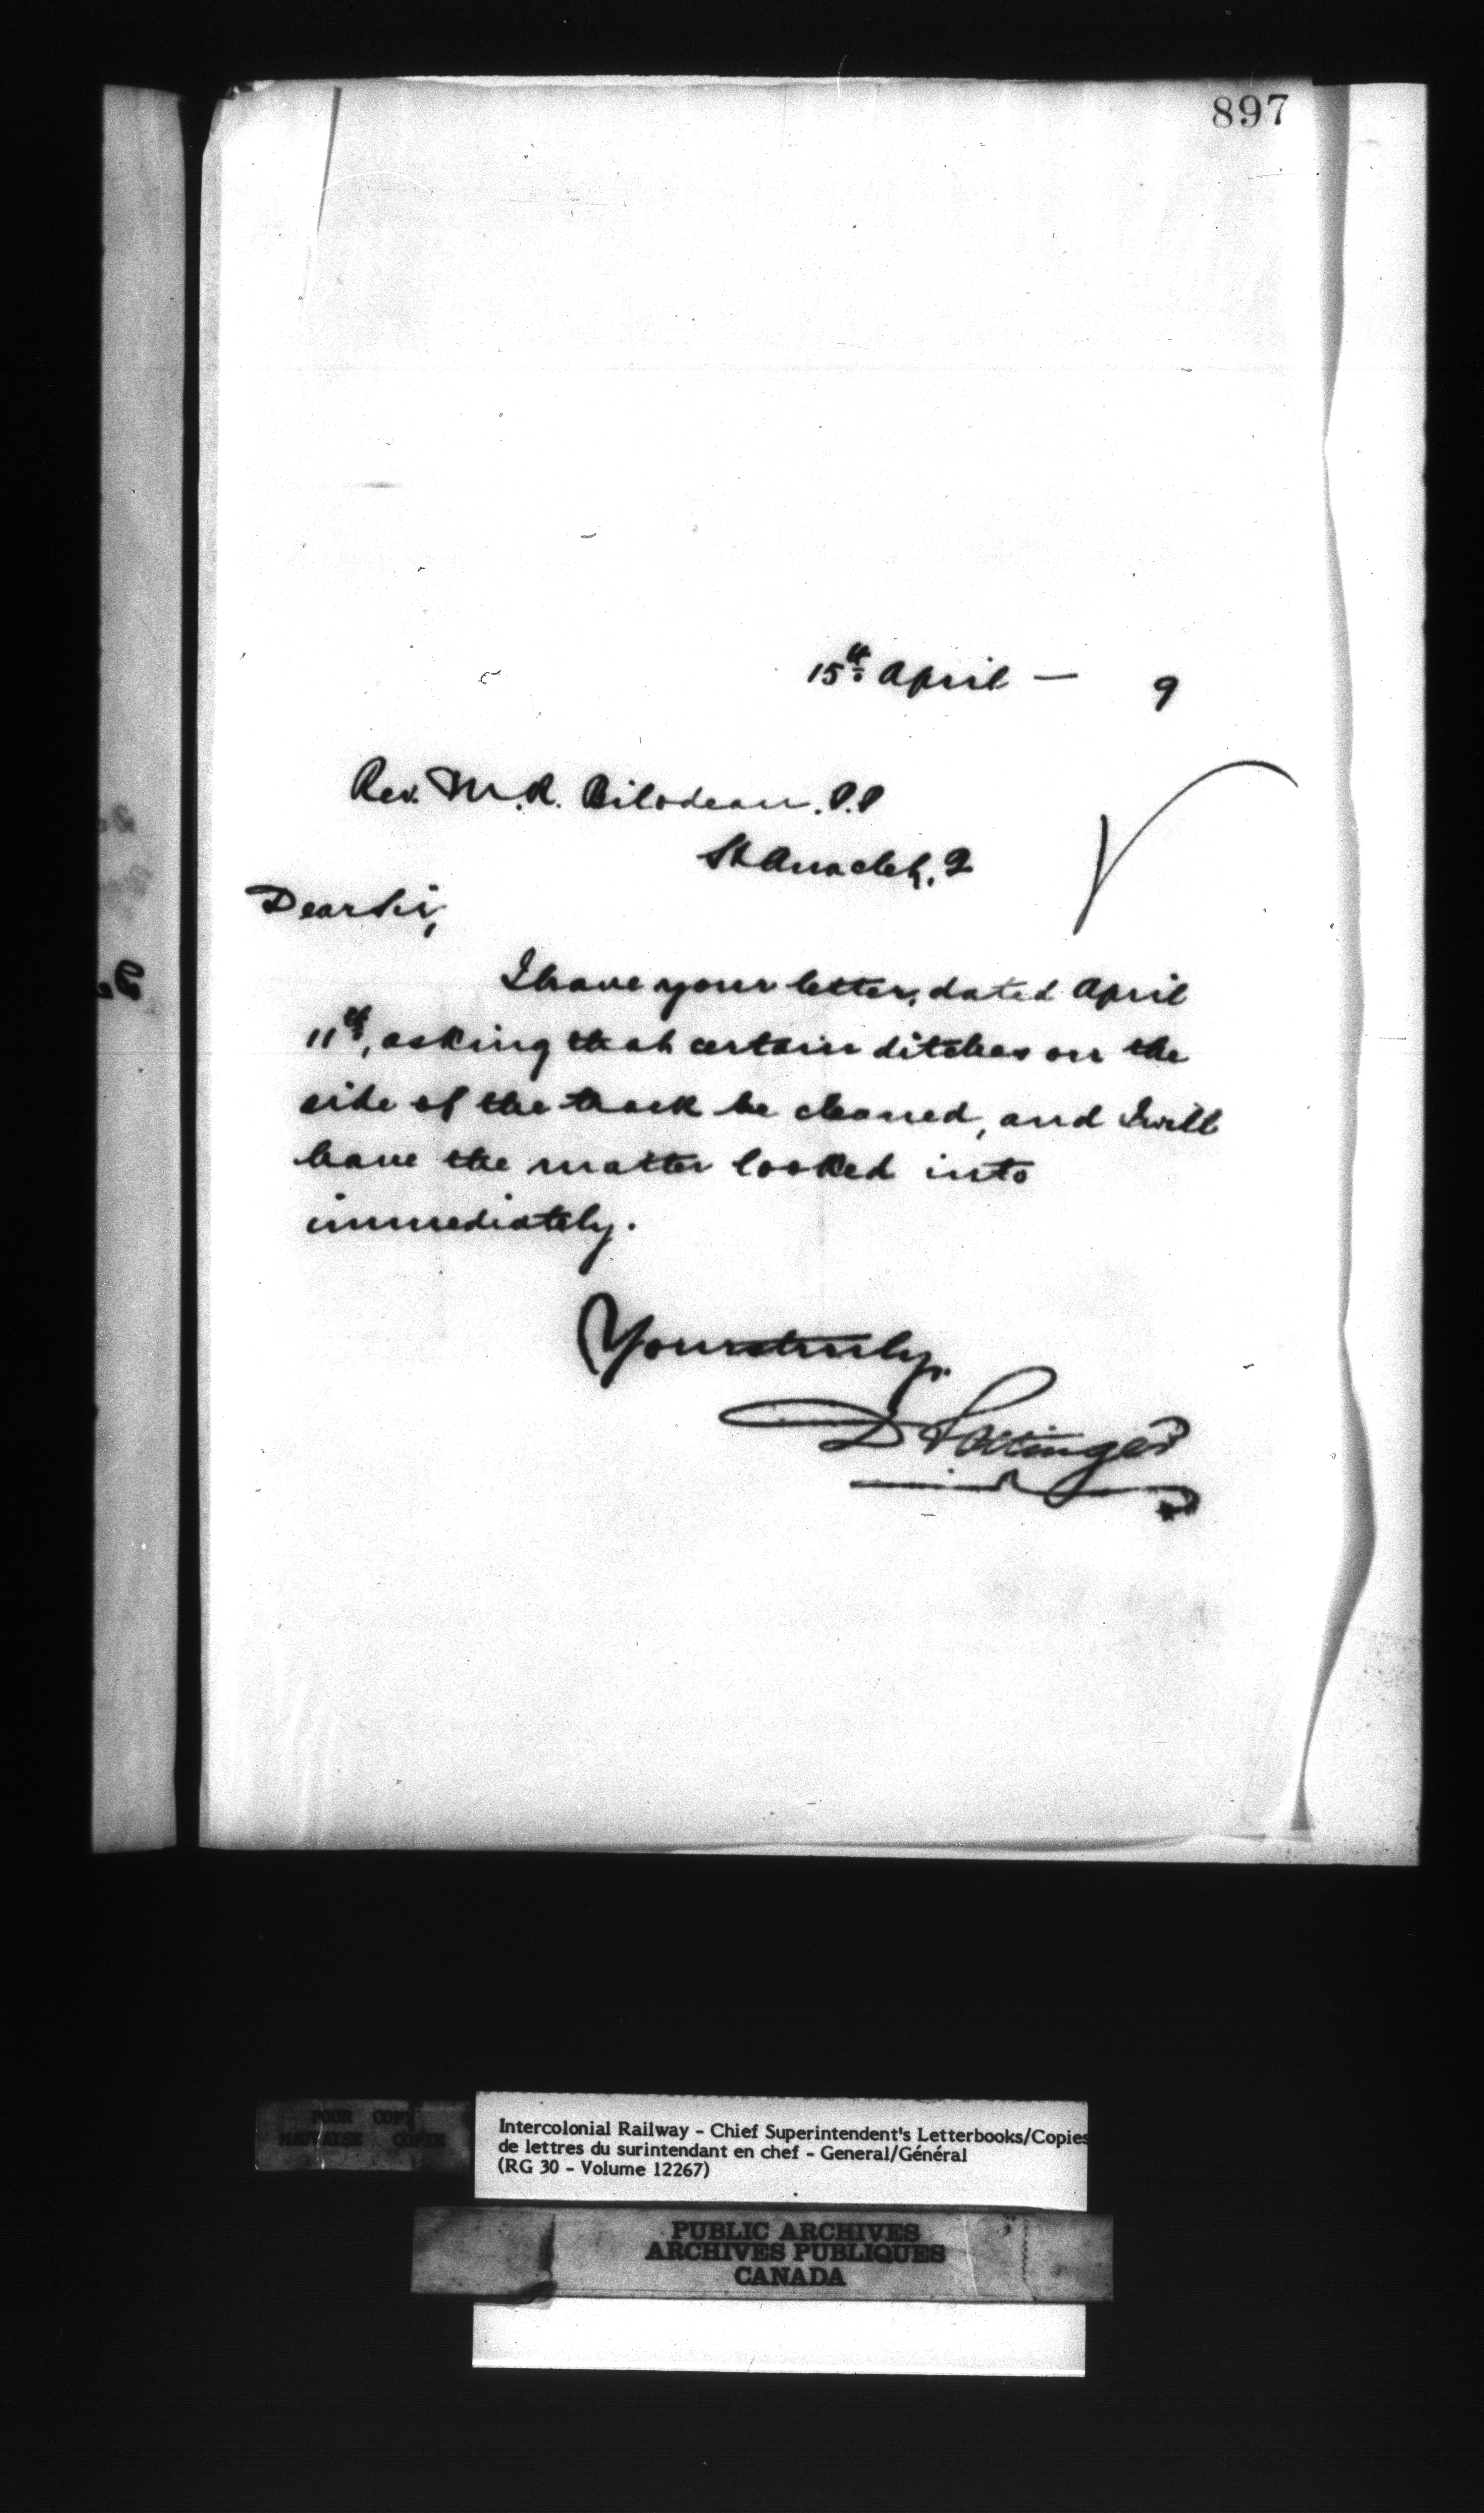 897
15th April — 9
Rev. M. R. Bilodeau. P.P
St Anaclet, Q
Dear Sir,
I have your letter, dated April
11th, asking that certain ditches on the
side of the track be cleaned, and I will
have the matter looked into
immediately.
Yours truly,
D Pottinger
POOR COPY
MAUVAISE COPIE
Intercolonial Railway - Chief Superintendent's Letterbooks/Copies
de lettres du surintendant en chef - General/Général
(RG 30 - Volume 12267)
PUBLIC ARCHIVES
ARCHIVES PUBLIQUES
CANADA